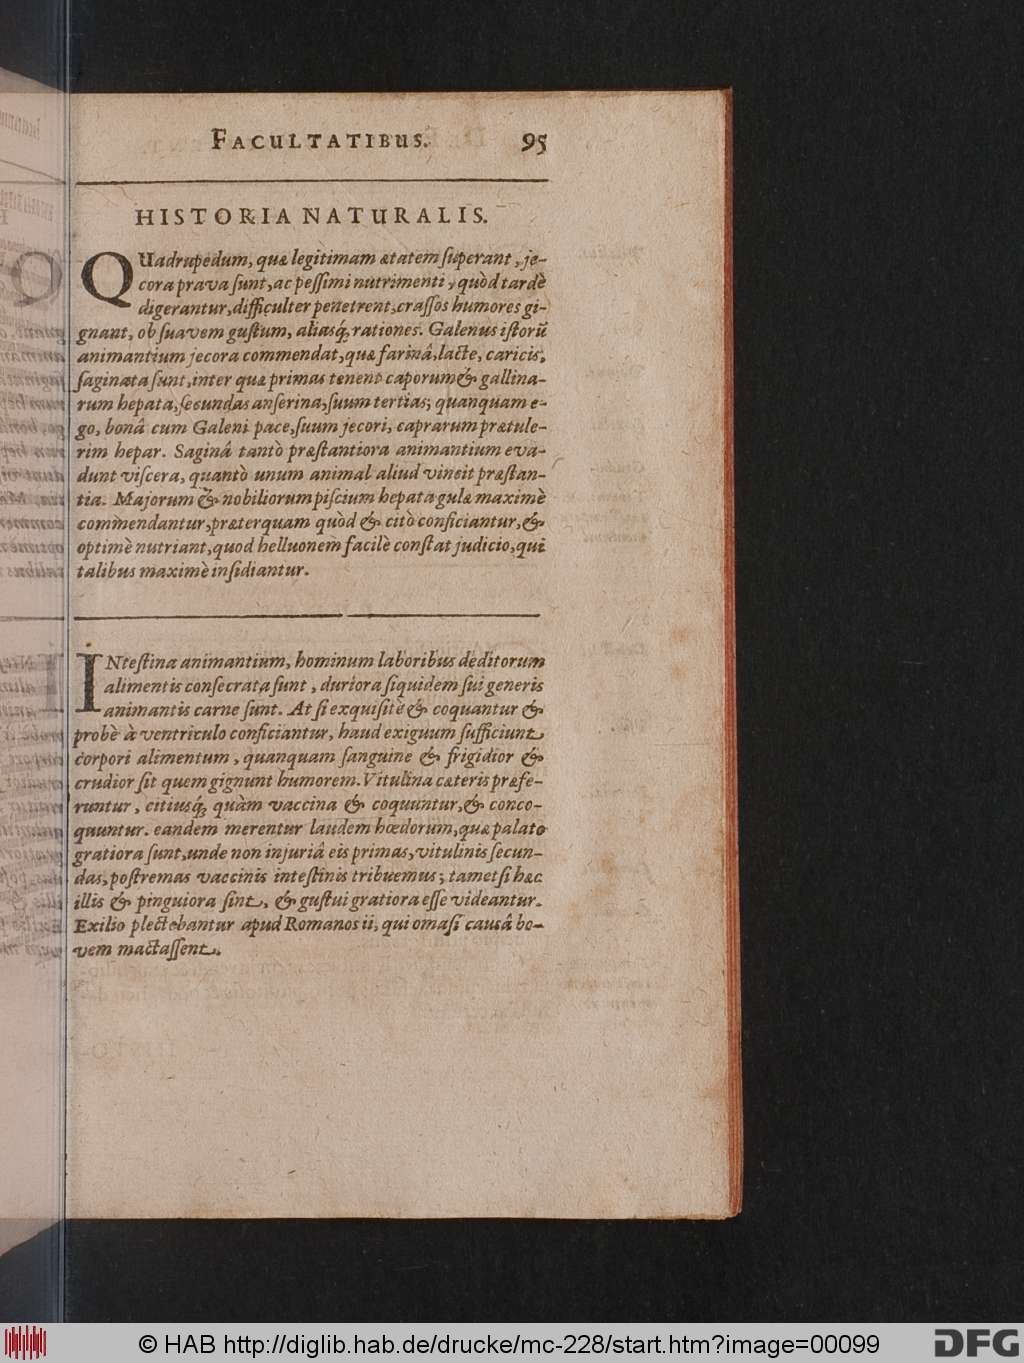 FACULTATIBUS. 95
HISTORIA NATURALIS.
QUadrupedum, quæ legitimam ætatem ſuperant, je-
cora prava ſunt, ac peſſimi nutrimenti, quòd tardè
digerantur, difficulter penetrent, craſſos humores gi-
gnant, ob ſuavem guſtum, aliasq́; rationes. Galenus iſtorũ
animantium jecora commendat, quæ farinâ, lacte, caricis,
ſaginata ſunt, inter quæ primas tenent caporum & gallina-
rum hepata, ſecundas anſerina, ſuum tertias; quanquam e-
go, bonâ cum Galeni pace, ſuum jecori, caprarum prætule-
rim hepar. Saginâ tantò præſtantiora animantium eva-
dunt viſcera, quantò unum animal aliud vincit præſtan-
tia. Majorum & nobiliorum piſcium hepata gulæ maximè
commendantur, præterquam quòd & citò conficiantur, &
optimè nutriant, quod helluonem facilè conſtat judicio, qui
talibus maximè inſidiantur.
INteſtina animantium, hominum laboribus deditorum
alimentis conſecrata ſunt, duriora ſiquidem ſui generis
animantis carne ſunt. At ſi exquiſitè & coquantur &
probè à ventriculo conficiantur, haud exiguum ſufficiunt
corpori alimentum, quanquam ſanguine & frigidior &
crudior ſit quem gignunt humorem. Vitulina cæteris præfe-
runtur, citiusq́; quàm vaccina & coquuntur, & conco-
quuntur. eandem merentur laudem hœdorum, quæ palato
gratiora ſunt, unde non injuriâ eis primas, vitulinis ſecun-
das, poſtremas vaccinis inteſtinis tribuemus; tametſi hæc
illis & pinguiora ſint, & guſtui gratiora eſſe videantur.
Exilio plectebantur apud Romanos ii, qui omaſi causâ bo-
vem mactaſſent.
© HAB http://diglib.hab.de/drucke/mc-228/start.htm?image=00099 DFG